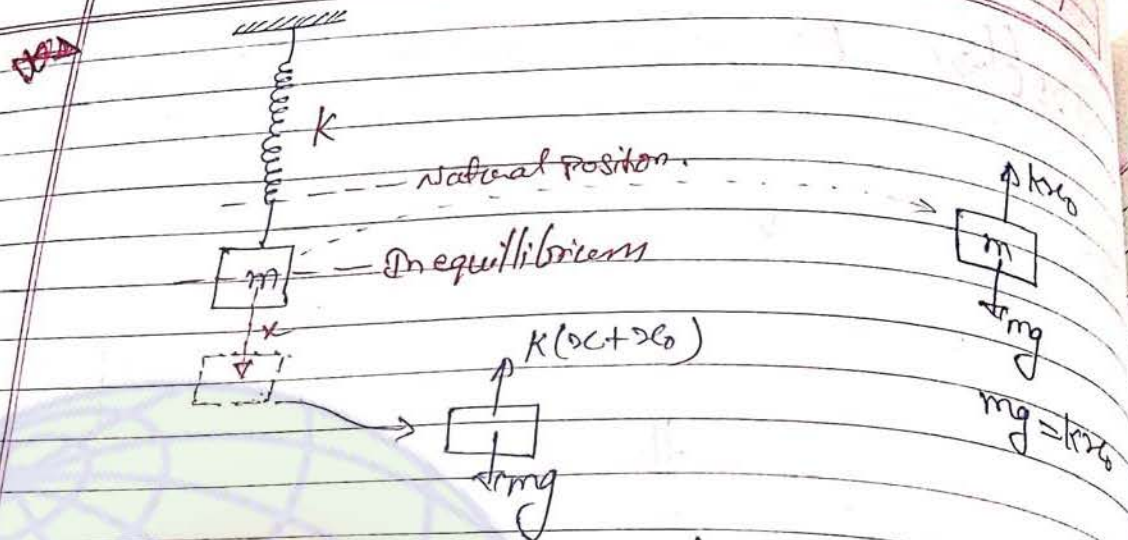 K
Natural Position.
In equillibricem
m
x
K(x+x₀)
mg
kx₀
m
mg
mg = kx₀